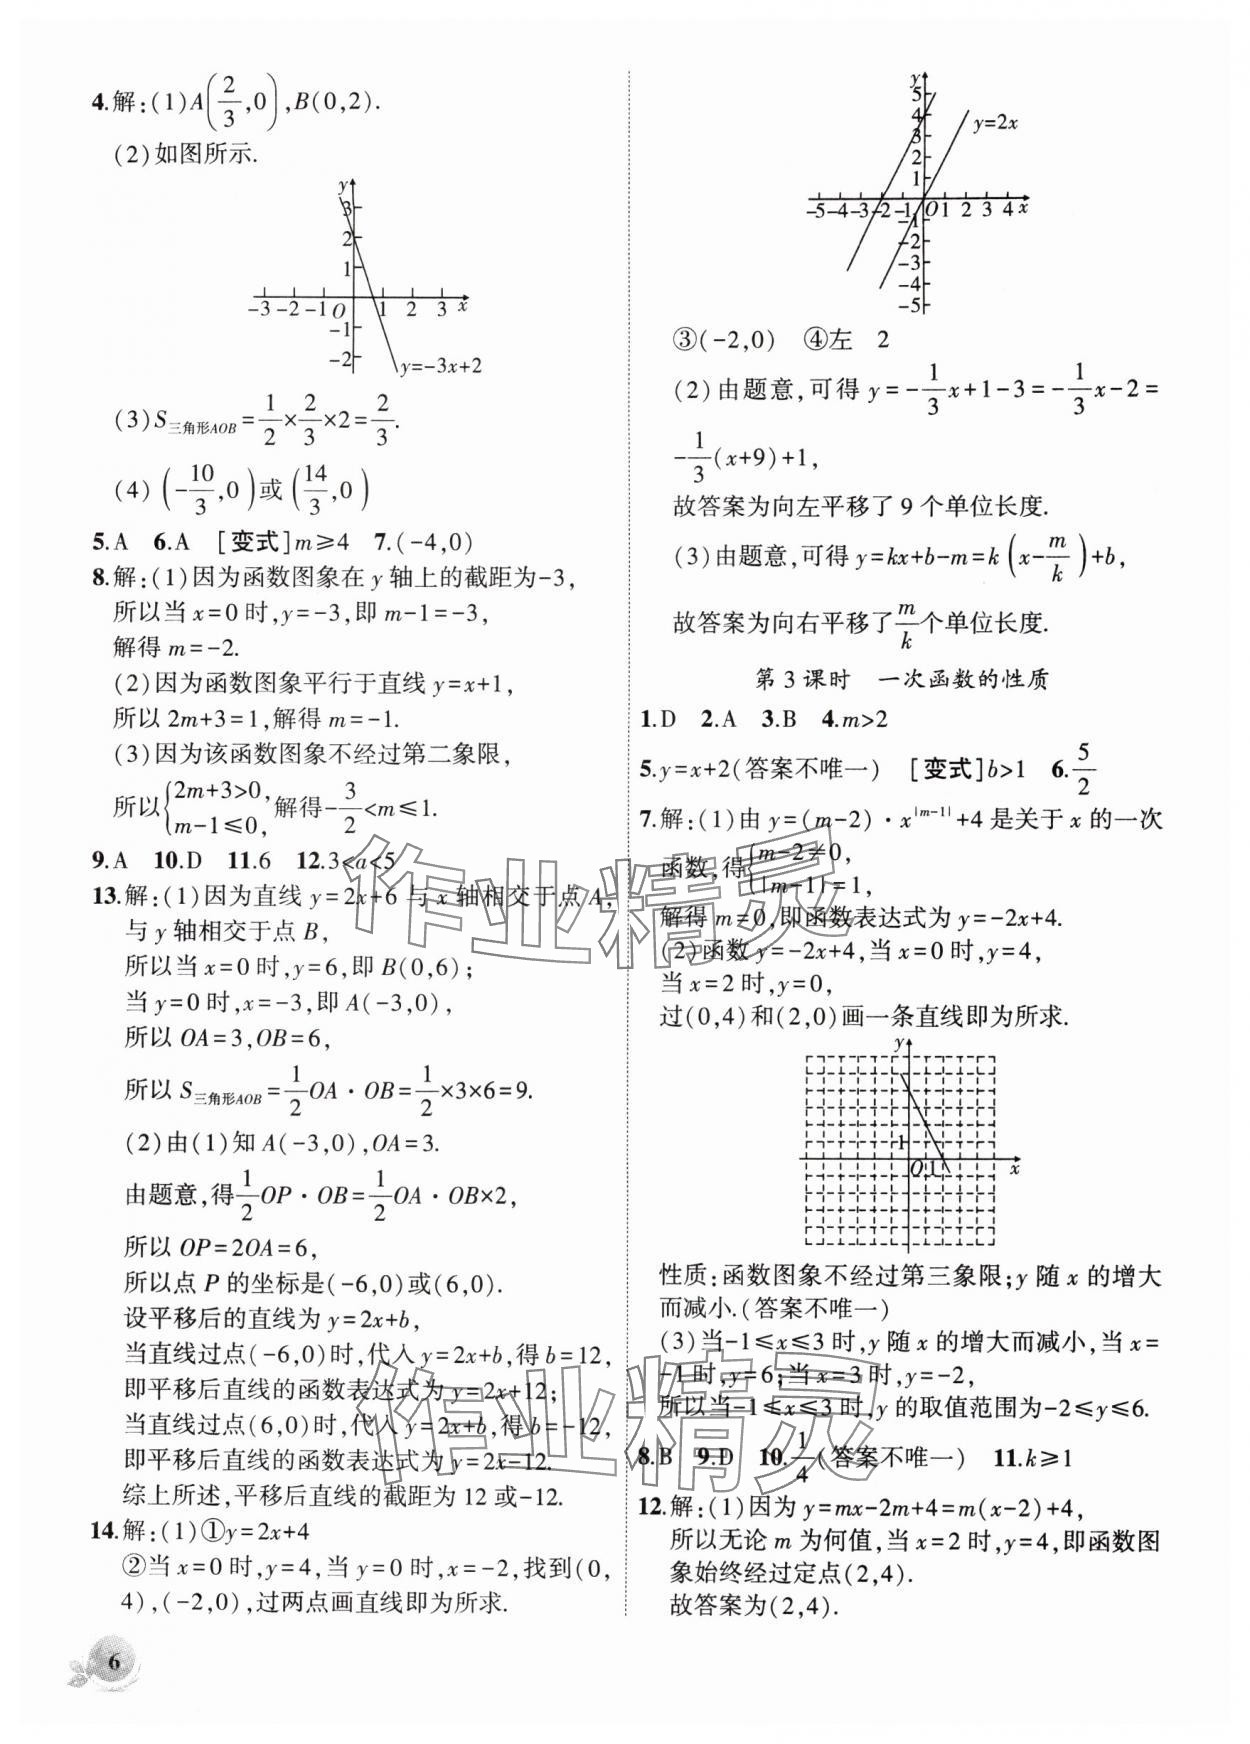 4.解:(1)A(2/3,0),B(0,2).
(2)如图所示.
y
3
2
1
-3 -2 -1 O 1 2 3 x
-1
-2
y=-3x+2
(3)S三角形AOB=1/2×2/3×2=2/3.
(4)(-10/3,0)或(14/3,0)
5.A 6.A [变式]m≥4 7.(-4,0)
8.解:(1)因为函数图象在 y 轴上的截距为-3,
所以当 x=0 时,y=-3,即 m-1=-3,
解得 m=-2.
(2)因为函数图象平行于直线 y=x+1,
所以 2m+3=1,解得 m=-1.
(3)因为该函数图象不经过第二象限,
所以{2m+3>0, m-1≤0, 解得-3/2<m≤1.
9.A 10.D 11.6 12.3<a<5
13.解:(1)因为直线 y=2x+6 与 x 轴相交于点 A,
与 y 轴相交于点 B,
所以当 x=0 时,y=6,即 B(0,6);
当 y=0 时,x=-3,即 A(-3,0),
所以 OA=3,OB=6,
所以 S三角形AOB=1/2OA·OB=1/2×3×6=9.
(2)由(1)知 A(-3,0),OA=3.
由题意,得1/2OP·OB=1/2OA·OB×2,
所以 OP=2OA=6,
所以点 P 的坐标是(-6,0)或(6,0).
设平移后的直线为 y=2x+b,
当直线过点(-6,0)时,代入 y=2x+b,得 b=12,
即平移后直线的函数表达式为 y=2x+12;
当直线过点(6,0)时,代入 y=2x+b,得 b=-12,
即平移后直线的函数表达式为 y=2x-12.
综上所述,平移后直线的截距为 12 或-12.
14.解:(1)①y=2x+4
②当 x=0 时,y=4,当 y=0 时,x=-2,找到(0,
4),(-2,0),过两点画直线即为所求.
6
y
5
4
3
2
1
y=2x
-5 -4 -3 -2 -1 O 1 2 3 4 x
-1
-2
-3
-4
-5
③(-2,0) ④左 2
(2)由题意,可得 y=-1/3x+1-3=-1/3x-2=
-1/3(x+9)+1,
故答案为向左平移了 9 个单位长度.
(3)由题意,可得 y=kx+b-m=k(x-m/k)+b,
故答案为向右平移了m/k个单位长度.
第 3 课时 一次函数的性质
1.D 2.A 3.B 4.m>2
5.y=x+2(答案不唯一) [变式]b>1 6.5/2
7.解:(1)由 y=(m-2)·x^|m-1|+4 是关于 x 的一次
函数,得{m-2≠0, |m-1|=1,
解得 m=0,即函数表达式为 y=-2x+4.
(2)函数 y=-2x+4,当 x=0 时,y=4,
当 x=2 时,y=0,
过(0,4)和(2,0)画一条直线即为所求.
y
1
O 1 x
性质:函数图象不经过第三象限;y 随 x 的增大
而减小.(答案不唯一)
(3)当-1≤x≤3 时,y 随 x 的增大而减小,当 x=
-1 时,y=6;当 x=3 时,y=-2,
所以当-1≤x≤3 时,y 的取值范围为-2≤y≤6.
8.B 9.D 10.1/4(答案不唯一) 11.k≥1
12.解:(1)因为 y=mx-2m+4=m(x-2)+4,
所以无论 m 为何值,当 x=2 时,y=4,即函数图
象始终经过定点(2,4).
故答案为(2,4).
作业精灵
作业精灵